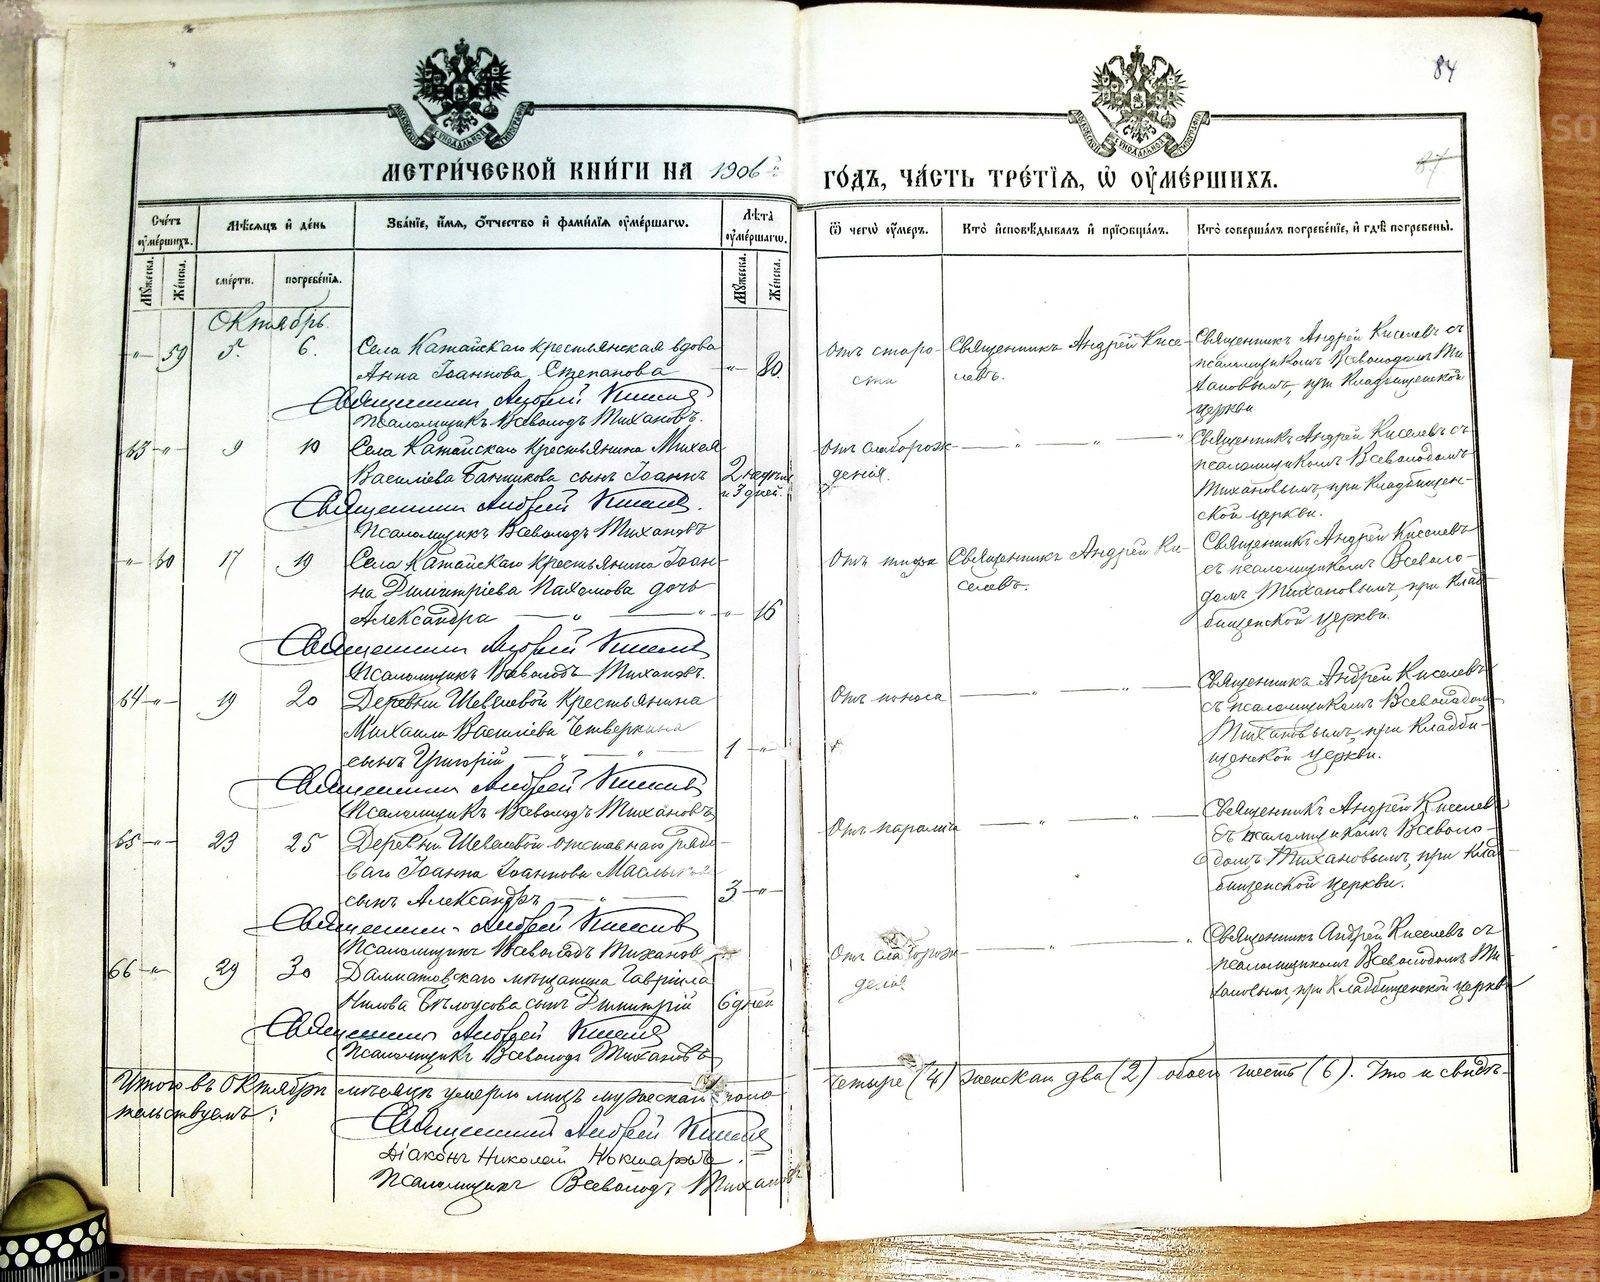 84
87
МЕТРИ́ЧЕСКОЙ КНИ́ГИ НА 1906 ГО́ДЪ, ЧА́СТЬ ТРЕ́ТІѦ, Ѡ ОУМЕ́РШИХЪ.
Сче́тъ оуме́ршихъ.
Мѣ́сѧцъ и де́нь
Зва́нїе, и́мѧ, о́тчество и фами́лїѧ оуме́ршагѡ.
Лѣ́та оуме́ршагѡ.
Ѿ чегѡ̀ оу́меръ.
Кто̀ и҆сповѣ́дывалъ и҆ прїобща́лъ.
Кто̀ соверша́лъ погребе́нїе, и҆ гдѣ̀ погребены̀.
Му́жеска. Же́нска. сме́рти. погребе́нїѧ. Му́жеска. Же́нска.
Октябрь.
59 5. 6. Села Катайскаго крестьянская вдова
Анна Іоаннова Степанова 80.
Священникъ Андрей Киселевъ
Псаломщикъ Всеволодъ Тихановъ.
Отъ старо-
сти
Священникъ Андрей Кисе-
левъ.
Священникъ Андрей Киселевъ съ
псаломщикомъ Всеволодомъ Ти-
хановымъ, при кладбищенской
церкви
63 9 10 Села Катайскаго крестьянина Михея
Василіева Банникова сынъ Іоаннъ 2 недѣли
и 3 дней.
Священникъ Андрей Киселевъ.
Псаломщикъ Всеволодъ Тихановъ
Отъ слаборож-
денія.
Священникъ Андрей Киселевъ съ
псаломщикомъ Всеволодомъ
Тихановымъ, при кладбищен-
ской церкви.
60 17 19 Села Катайскаго крестьянина Іоан-
на Димитріева Пахомова дочь
Александра 16
Священникъ Андрей Киселевъ
Псаломщикъ Всеволодъ Тихановъ.
Отъ тифа
Священникъ Андрей Ки-
селевъ.
Священникъ Андрей Киселевъ
съ псаломщикомъ Всеволо-
домъ Тихановымъ, при клад-
бищенской церкви.
64 19 20 Деревни Шевелевой крестьянина
Михаила Василіева Четверкина
сынъ Григорій 1
Священникъ Андрей Киселевъ
Псаломщикъ Всеволодъ Тихановъ
Отъ поноса
Священникъ Андрей Киселевъ
съ псаломщикомъ Всеволодомъ
Тихановымъ, при кладби-
щенской церкви.
65 23 25 Деревни Шевелевой отставнаго рядо-
ваго Іоанна Іоаннова
сынъ Александръ 3
Священникъ Андрей Киселевъ
Псаломщикъ Всеволодъ Тихановъ
Отъ паралича
Священникъ Андрей Киселевъ
съ псаломщикомъ Всеволо-
домъ Тихановымъ, при клад-
бищенской церкви.
66 29 30 Далматовскаго мѣщанина Гавріила
Нилова Бѣлоусова сынъ Димитрій 6 дней
Священникъ Андрей Киселевъ
Псаломщикъ Всеволодъ Тихановъ
Отъ слаборож-
денія.
Священникъ Андрей Киселевъ съ
псаломщикомъ Всеволодомъ Ти-
хановымъ, при кладбищенской церкви
Итого въ Октябрѣ мѣсяцѣ умерло лицъ мужеска пола четыре (4) женска два (2) обоего шесть (6). Что и свидѣ-
тельствуемъ:
Священникъ Андрей Киселевъ
Діаконъ Николай
Псаломщикъ Всеволодъ Тихановъ